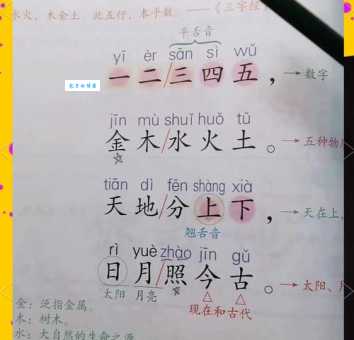 水火，木金土，此五行，本乎数。 ——《三字经
平舌音
yī èr sān sì wǔ
一二/三四五， → 数字
jīn mù shuǐ huǒ tǔ
金木/水火土。 → 五种物
tiān dì fēn shàng xià
天地/分上下， → 天在上，
翘舌音
rì yuè zhào jīn gǔ
日月/照今古。 → 太阳、月
太阳 月亮
现在和古代
金：泛指金属。
木：树木。
水：大自然的生命之源